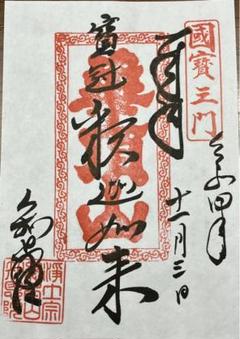 國寶三門
令和四年
十一月三日
寶冠釈迦如来
華頂山
知恩院